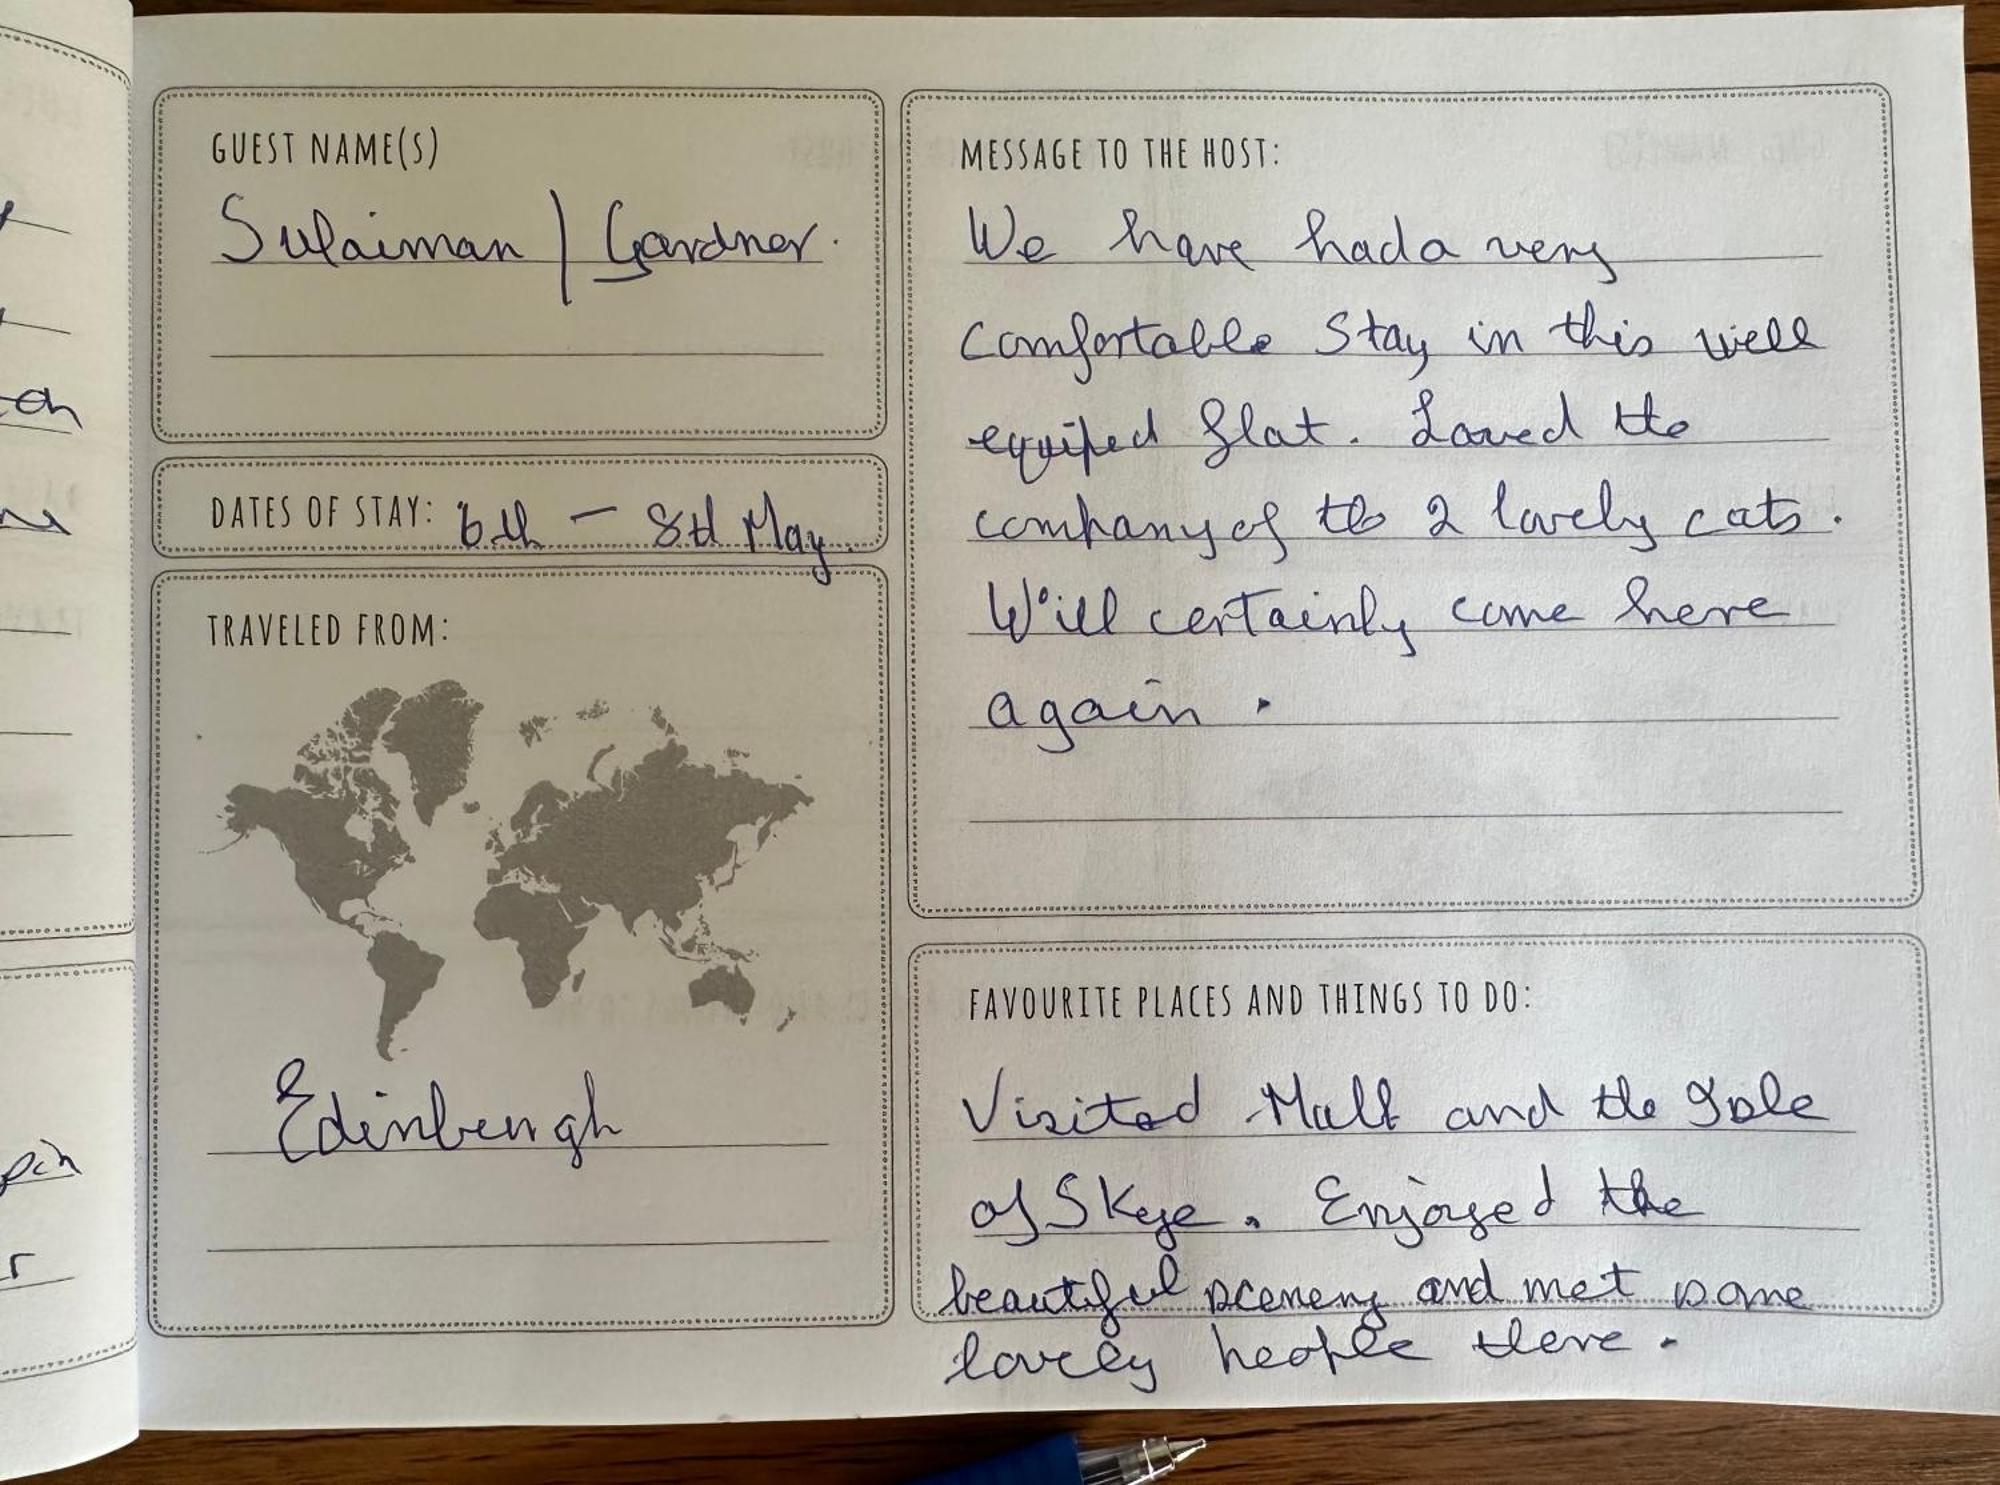 GUEST NAME(S)
Sulaiman / Gardner.
DATES OF STAY: 6th – 8th May
TRAVELED FROM:
Edinburgh
MESSAGE TO THE HOST:
We have had a very
comfortable stay in this well
equiped flat. Loved the
company of the 2 lovely cats.
Will certainly come here
again.
FAVOURITE PLACES AND THINGS TO DO:
Visited Mull and the Isle
of Skye. Enjoyed the
beautiful scenery and met some
lovely people there.